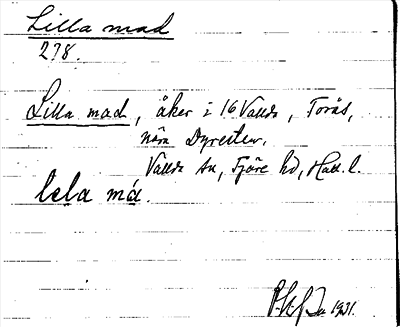 Lilla mad
278.
Lilla mad, åker i 16 Vallda, Torås,
nära Dyresten.
Vallda sn, Fjäre hd, Hall. l.
lela má.
1931.